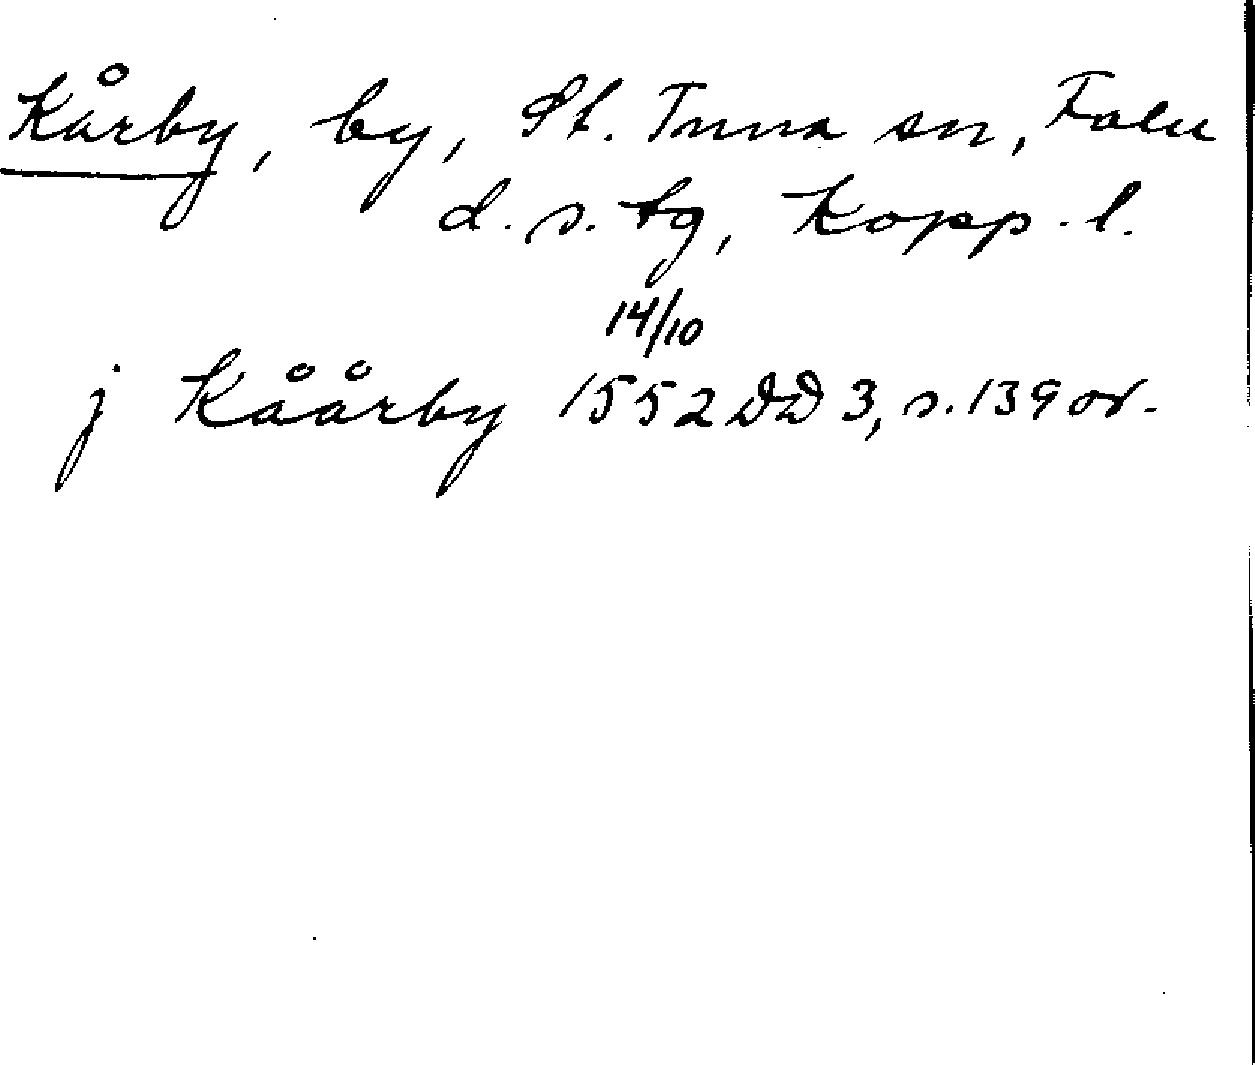 Kårby, by, St. Tuna sn, Falu
d. s. tg, Kopp. l.
14/10
j Kåårby 1552 DD 3, s. 139 or.